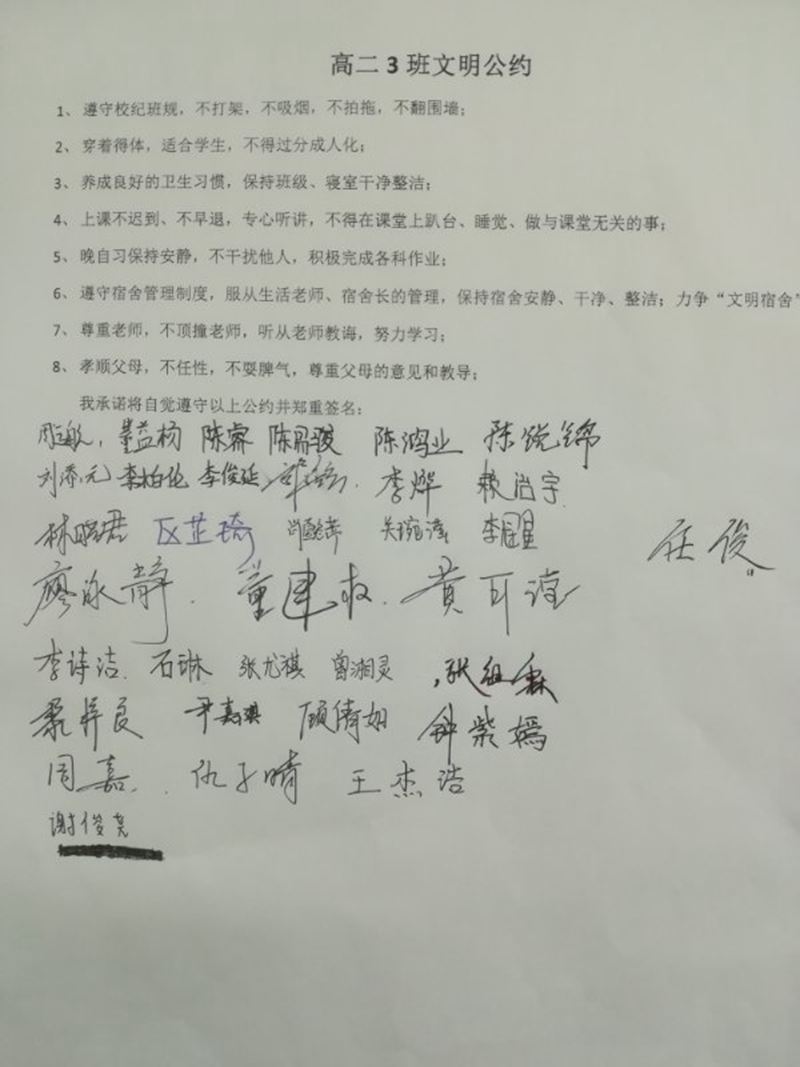 高二 3 班文明公约
1、遵守校纪班规，不打架，不吸烟，不拍拖，不翻围墙；
2、穿着得体，适合学生，不得过分成人化；
3、养成良好的卫生习惯，保持班级、寝室干净整洁；
4、上课不迟到、不早退，专心听讲，不得在课堂上趴台、睡觉、做与课堂无关的事；
5、晚自习保持安静，不干扰他人，积极完成各科作业；
6、遵守宿舍管理制度，服从生活老师、宿舍长的管理，保持宿舍安静、干净、整洁；力争“文明宿舍”
7、尊重老师，不顶撞老师，听从老师教诲，努力学习；
8、孝顺父母，不任性，不耍脾气，尊重父母的意见和教导；
我承诺将自觉遵守以上公约并郑重签名：
陈睿 陈鸿业
李柏伦 李俊延 李烨 赖治宇
林晓君 区芷琦 任俊
廖泳静
李诗洁 石琳 张尤祺 曾湘灵
尹嘉琪 顾倩如 钟紫嫣
周嘉 仇子晴 王杰浩
谢俊尧